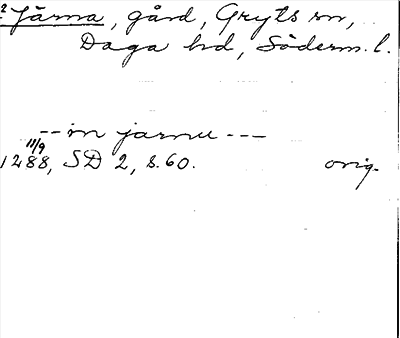 2 Järna, gård, Gryts sn,
Daga hd, Söderm. l.
-- in jarnu ---
11/9
1288, SD 2, s. 60. orig.